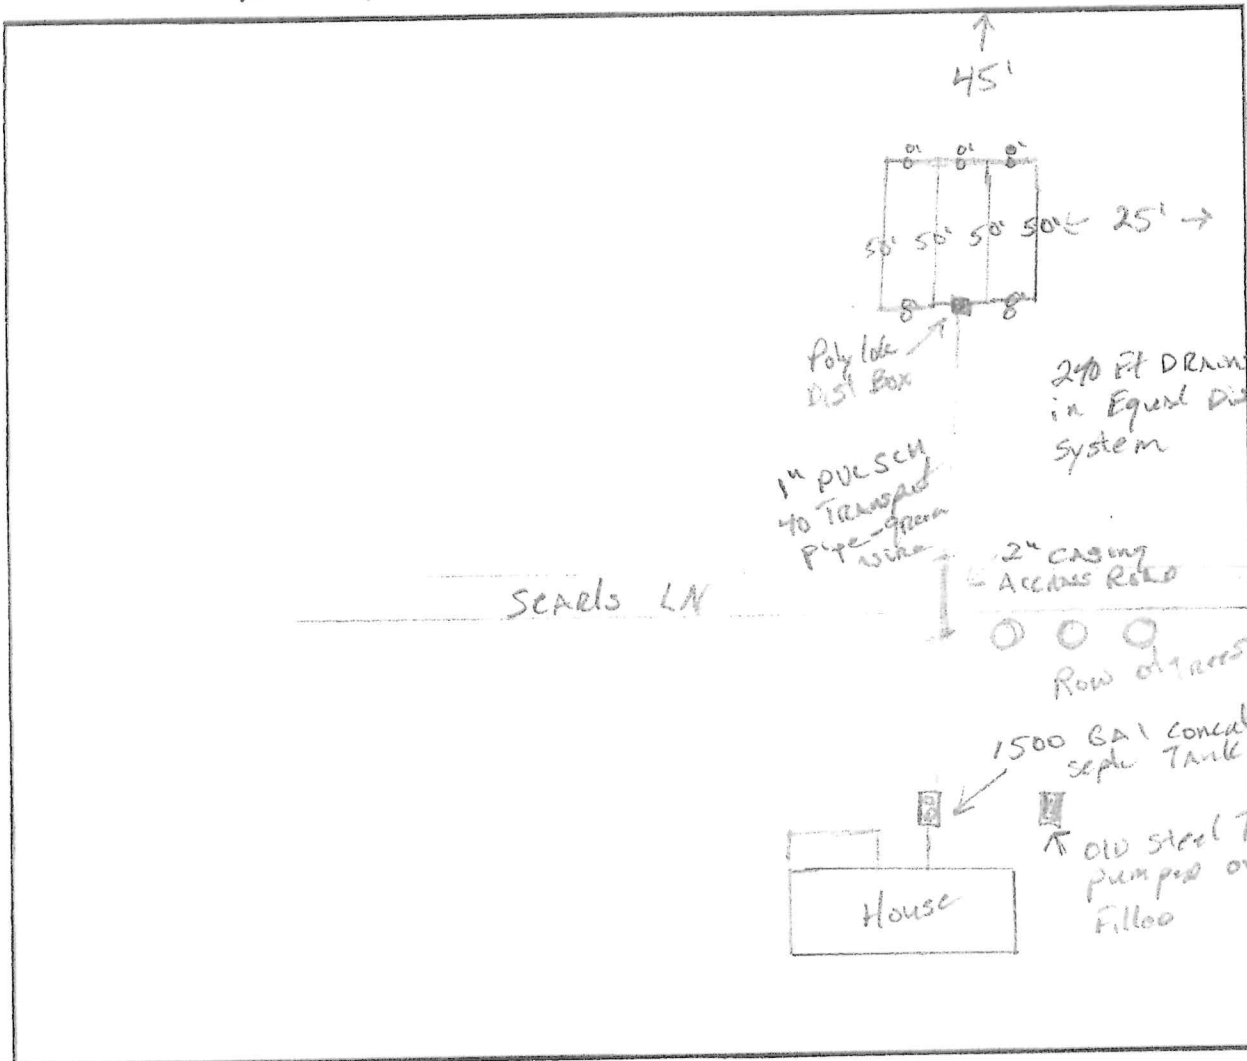 45'
8' 8' 8'
50' 50' 50' 50' ← 25' →
8' 8'
Poly lok
Dist Box
240 Ft DRAIN
in Equal Dis
System
1" PVC SCH
40 TRANSport
pipe-green
wire
2" CASing
ACCess ROAD
SEARls LN
Row of Trees
1500 GAl
septc TAnk
House
OlD Steel T
pumped
Filled